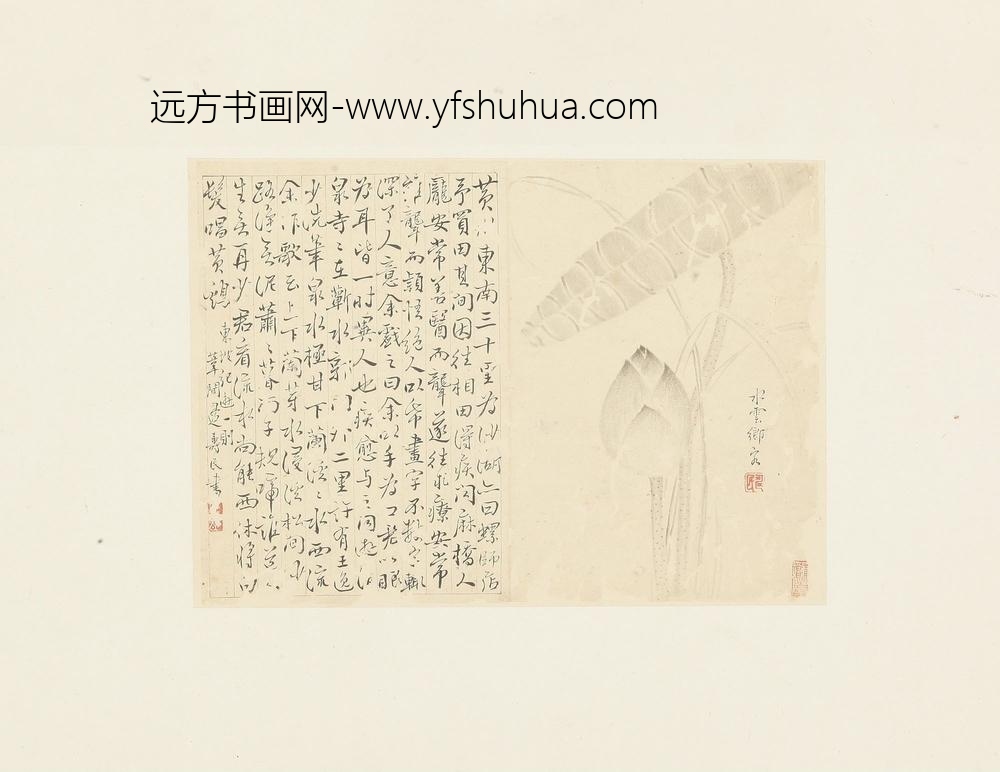 远方书画网-www.yfshuhua.com
黄州東南三十里為沙湖亦曰螺師店
予買田其間因往相田得疾聞麻橋人
龐安常善醫而聾遂往求療安常
雖聾而穎悟絕人以紙畫字不數字輒
深了人意余戲之曰余以手為口君以眼
為耳皆一時異人也疾愈與之同遊清
泉寺寺在蘄水郭門外二里許有王逸
少洗筆泉水極甘下蘭溪溪水西流
余作歌云山下蘭芽浸溪松間沙
路淨無泥蕭蕭子規啼誰道人
生無再少君看流水尚能西休將白
髮唱黄雞
東坡記遊一則
葦間邊壽民書
水雲鄉客